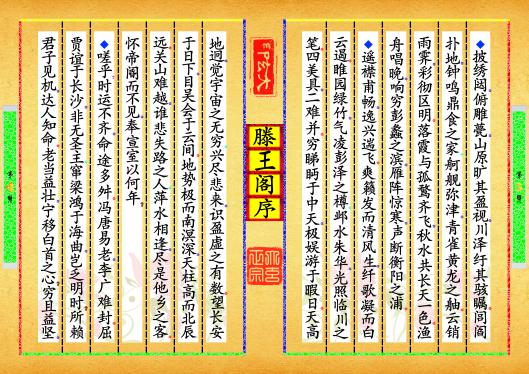 披绣闼俯雕甍山原旷其盈视川泽纡其骇瞩闾阎
扑地钟鸣鼎食之家舸舰弥津青雀黄龙之舳云销
雨霁彩彻区明落霞与孤鹜齐飞秋水共长天一色渔
舟唱晚响穷彭蠡之滨雁阵惊寒声断衡阳之浦
遥襟甫畅逸兴遄飞爽籁发而清风生纤歌凝而白
云遏睢园绿竹气凌彭泽之樽邺水朱华光照临川之
笔四美具二难并穷睇眄于中天极娱游于暇日天高
滕王阁序
地迥觉宇宙之无穷兴尽悲来识盈虚之有数望长安
于日下目吴会于云间地势极而南溟深天柱高而北辰
远关山难越谁悲失路之人萍水相逢尽是他乡之客
怀帝阍而不见奉宣室以何年
嗟乎时运不齐命途多舛冯唐易老李广难封屈
贾谊于长沙非无圣主窜梁鸿于海曲岂乏明时所赖
君子见机达人知命老当益壮宁移白首之心穷且益坚